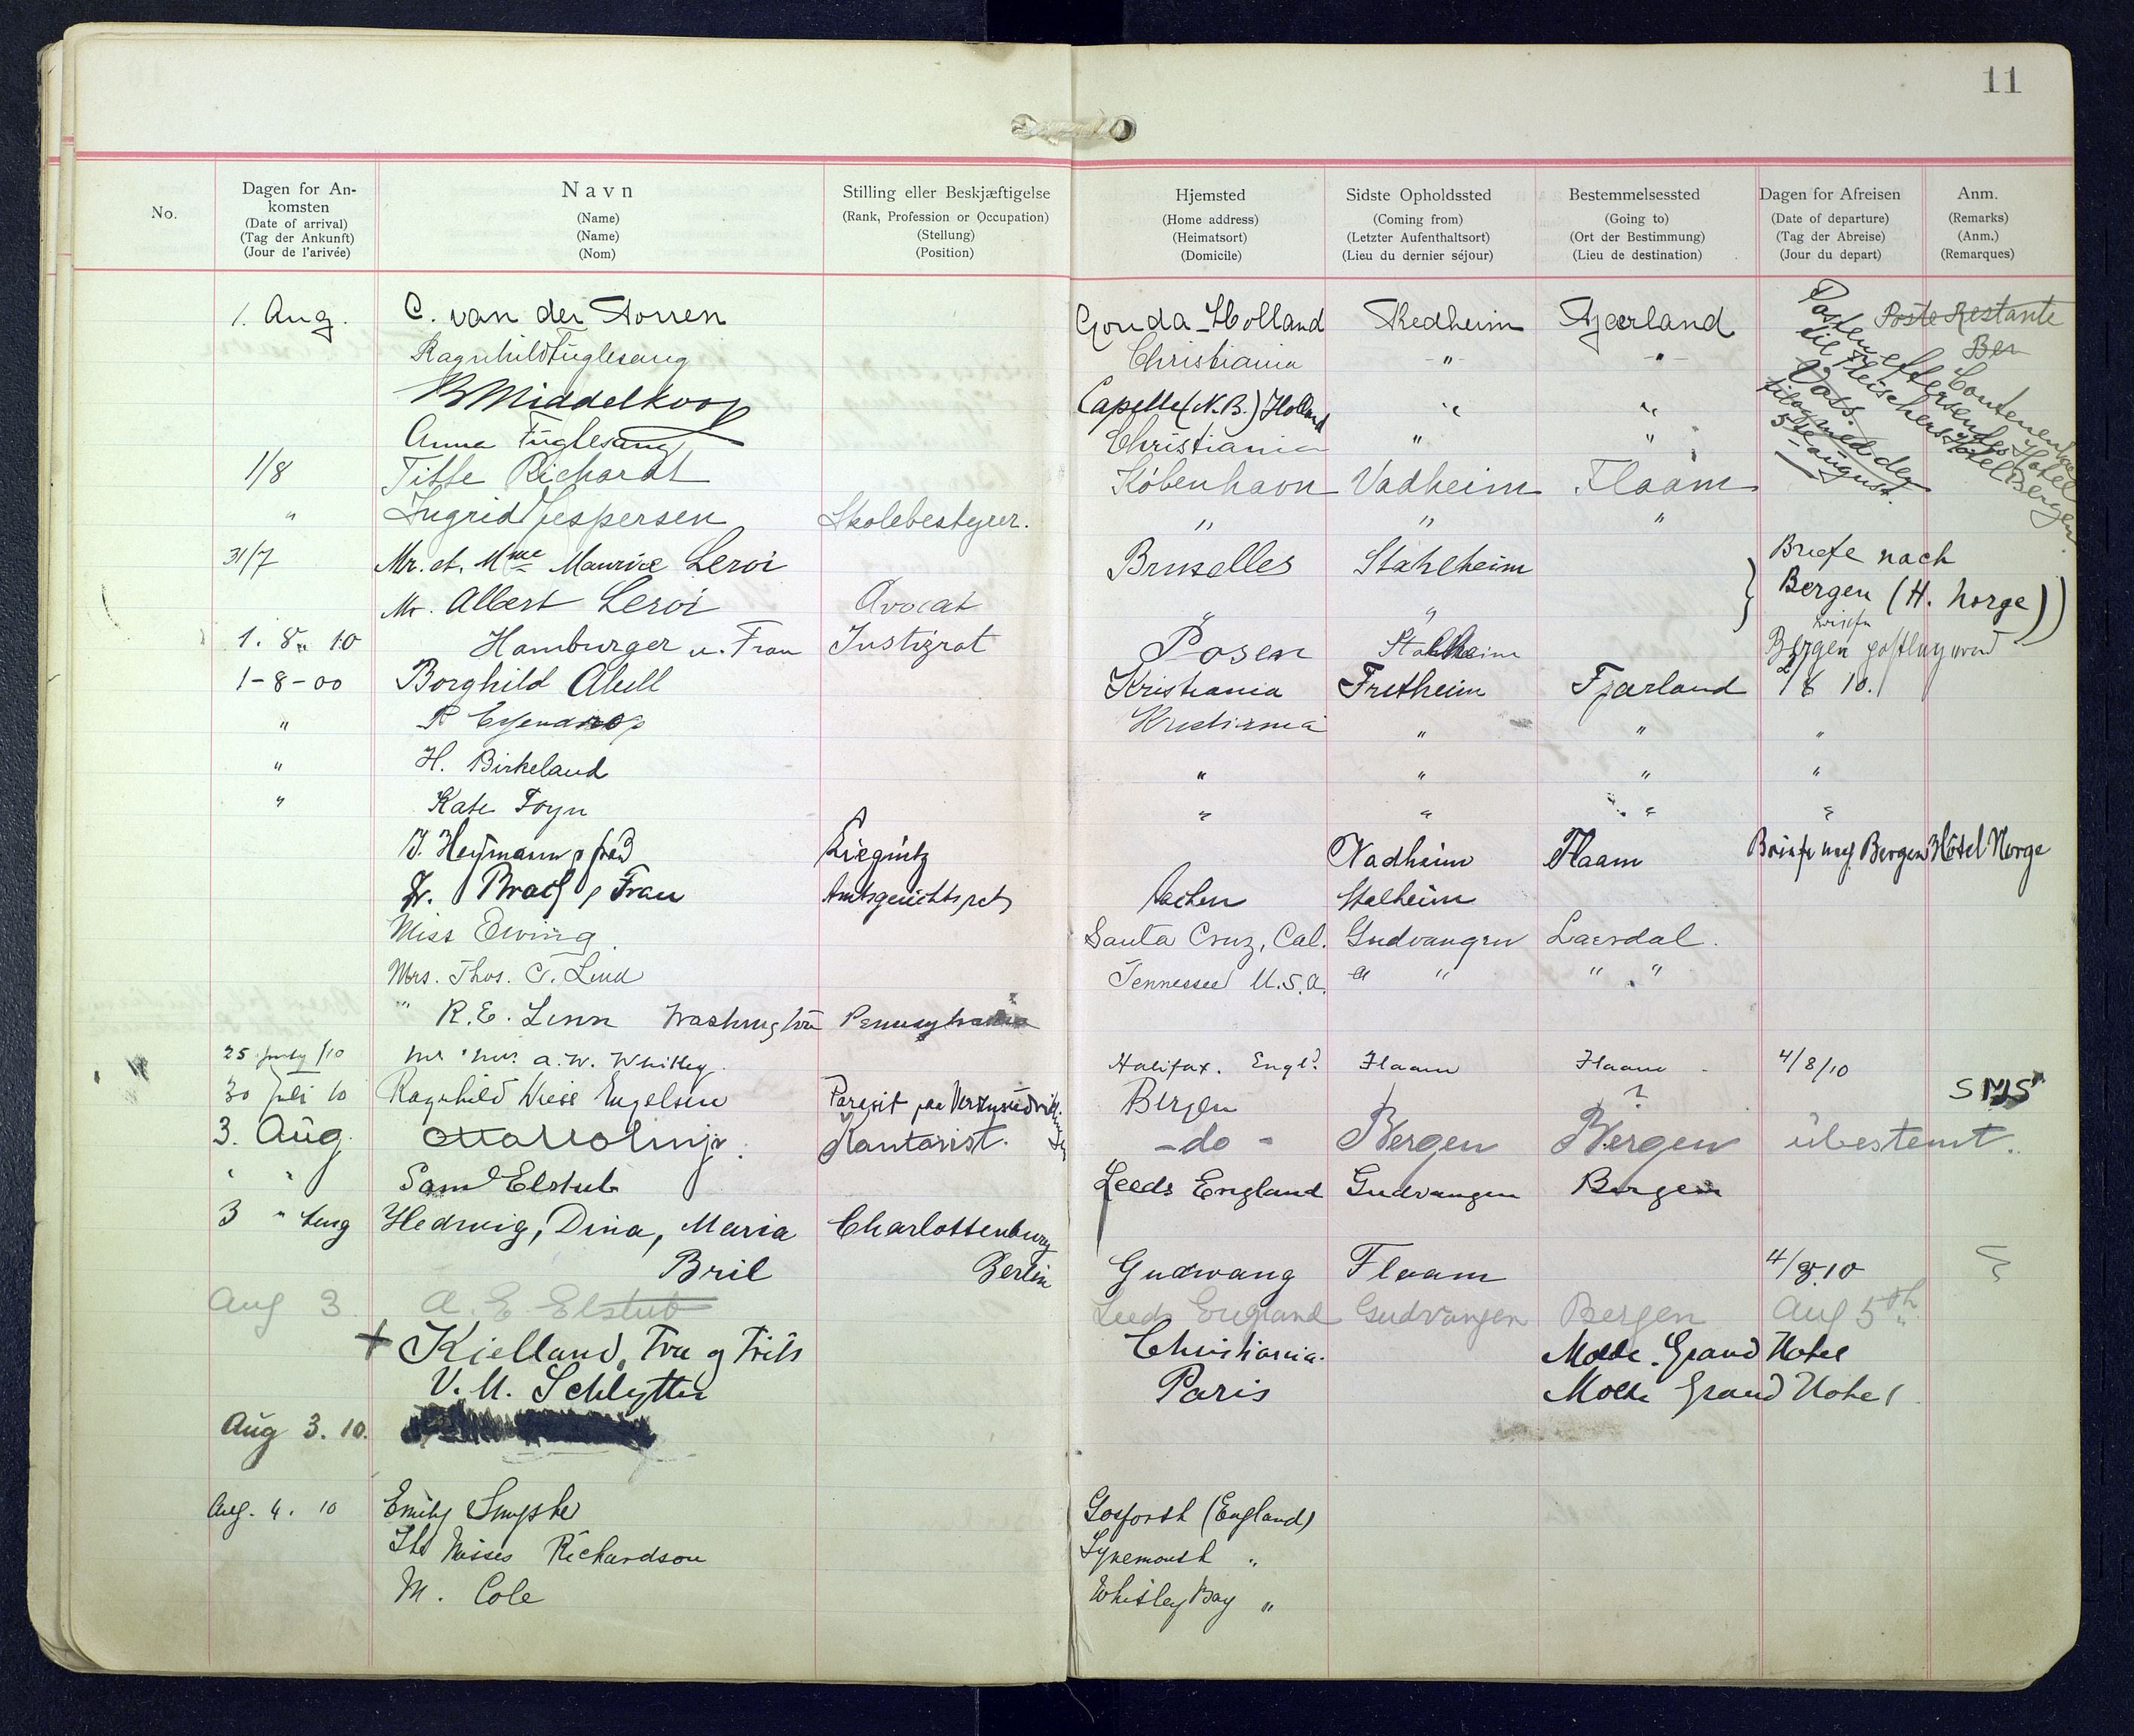 11
No.
Dagen for An-
komsten
(Date of arrival)
(Tag der Ankunft)
(Jour de l'arivée)
Navn
(Name)
(Name)
(Nom)
Stilling eller Beskjæftigelse
(Rank, Profession or Occupation)
(Stellung)
(Position)
Hjemsted
(Home address)
(Heimatsort)
(Domicile)
Sidste Opholdssted
(Coming from)
(Letzter Aufenthaltsort)
(Lieu du dernier séjour)
Bestemmelsessted
(Going to)
(Ort der Bestimmung)
(Lieu de destination)
Dagen for Afreisen
(Date of departure)
(Tag der Abreise)
(Jour du depart)
Anm.
(Remarks)
(Anm.)
(Remarques)
1. Aug. C. van der Torren Gouda-Holland Fjærland Poste Restante
Ragnhild Fuglesang Christiania -"- -"- Ber
B Middelkoop Capelle (N.B.) Holland " "
Anna Fuglesang Christiania " "
Posten eftersendes
til Fleischers Hotel
Voss
5te august.
Hotel Bergen
1/8 Titte Richardt København Vadheim Flaam
" Ingrid Jespersen Skolebestyrer. " " "
31/7 Mr. et Mme Maurice Leroi Bruxelles Stahlheim Briefe nach
Mr. Albert Leroi Avocat " " Bergen (H. Norge)
1. 8. 10 Hamburger u. Frau Justizrat Posen Stahlheim Bergen
1-8-00 Borghild Abell Kristiania Fretheim Fjærland 2/8 10.
" Kristiania " " "
" H. Birkeland " " " "
" Kate Foyn " " " "
J. Heymann Liegnitz Vadheim Flaam Briefe nach Bergen Hôtel Norge
Dr. Frau Amtsgerichtsrat Aachen Stalheim
Miss Ewing. Santa Cruz, Cal. Gudvangen Laerdal.
Mrs. Thos. C. Lind Tennessee U.S.A. " " " "
" R. E. Linn Washington Pennsylvania
25 July /10 Mr & Mrs. A. W. Whitley. Halifax. Engld Flaam Flaam 4/8/10
30 juli 10 Ragnhild Wiese Engelsen Bergen ?
3. Aug. Kontorist. -do- Bergen Bergen übestemt.
" " Saml Elstub Leeds England Gudvangen Bergen
3 " Aug Hedwig, Dina, Maria Charlottenburg
Bril Berlin Gudwang Flaam 4/8.10
Aug 3 A. E. Elstub Leeds England Gudvangen Bergen Aug 5th
+ Kielland, Fru og Frits Christiania. Molde. Grand Hotel
V. M. Schlytter Paris Molde Grand Hotel
Aug 3. 10.
Aug. 4. 10 Emily Gosforth (England)
The Misses Richardson Tynemouth "
M. Cole Whitley Bay "